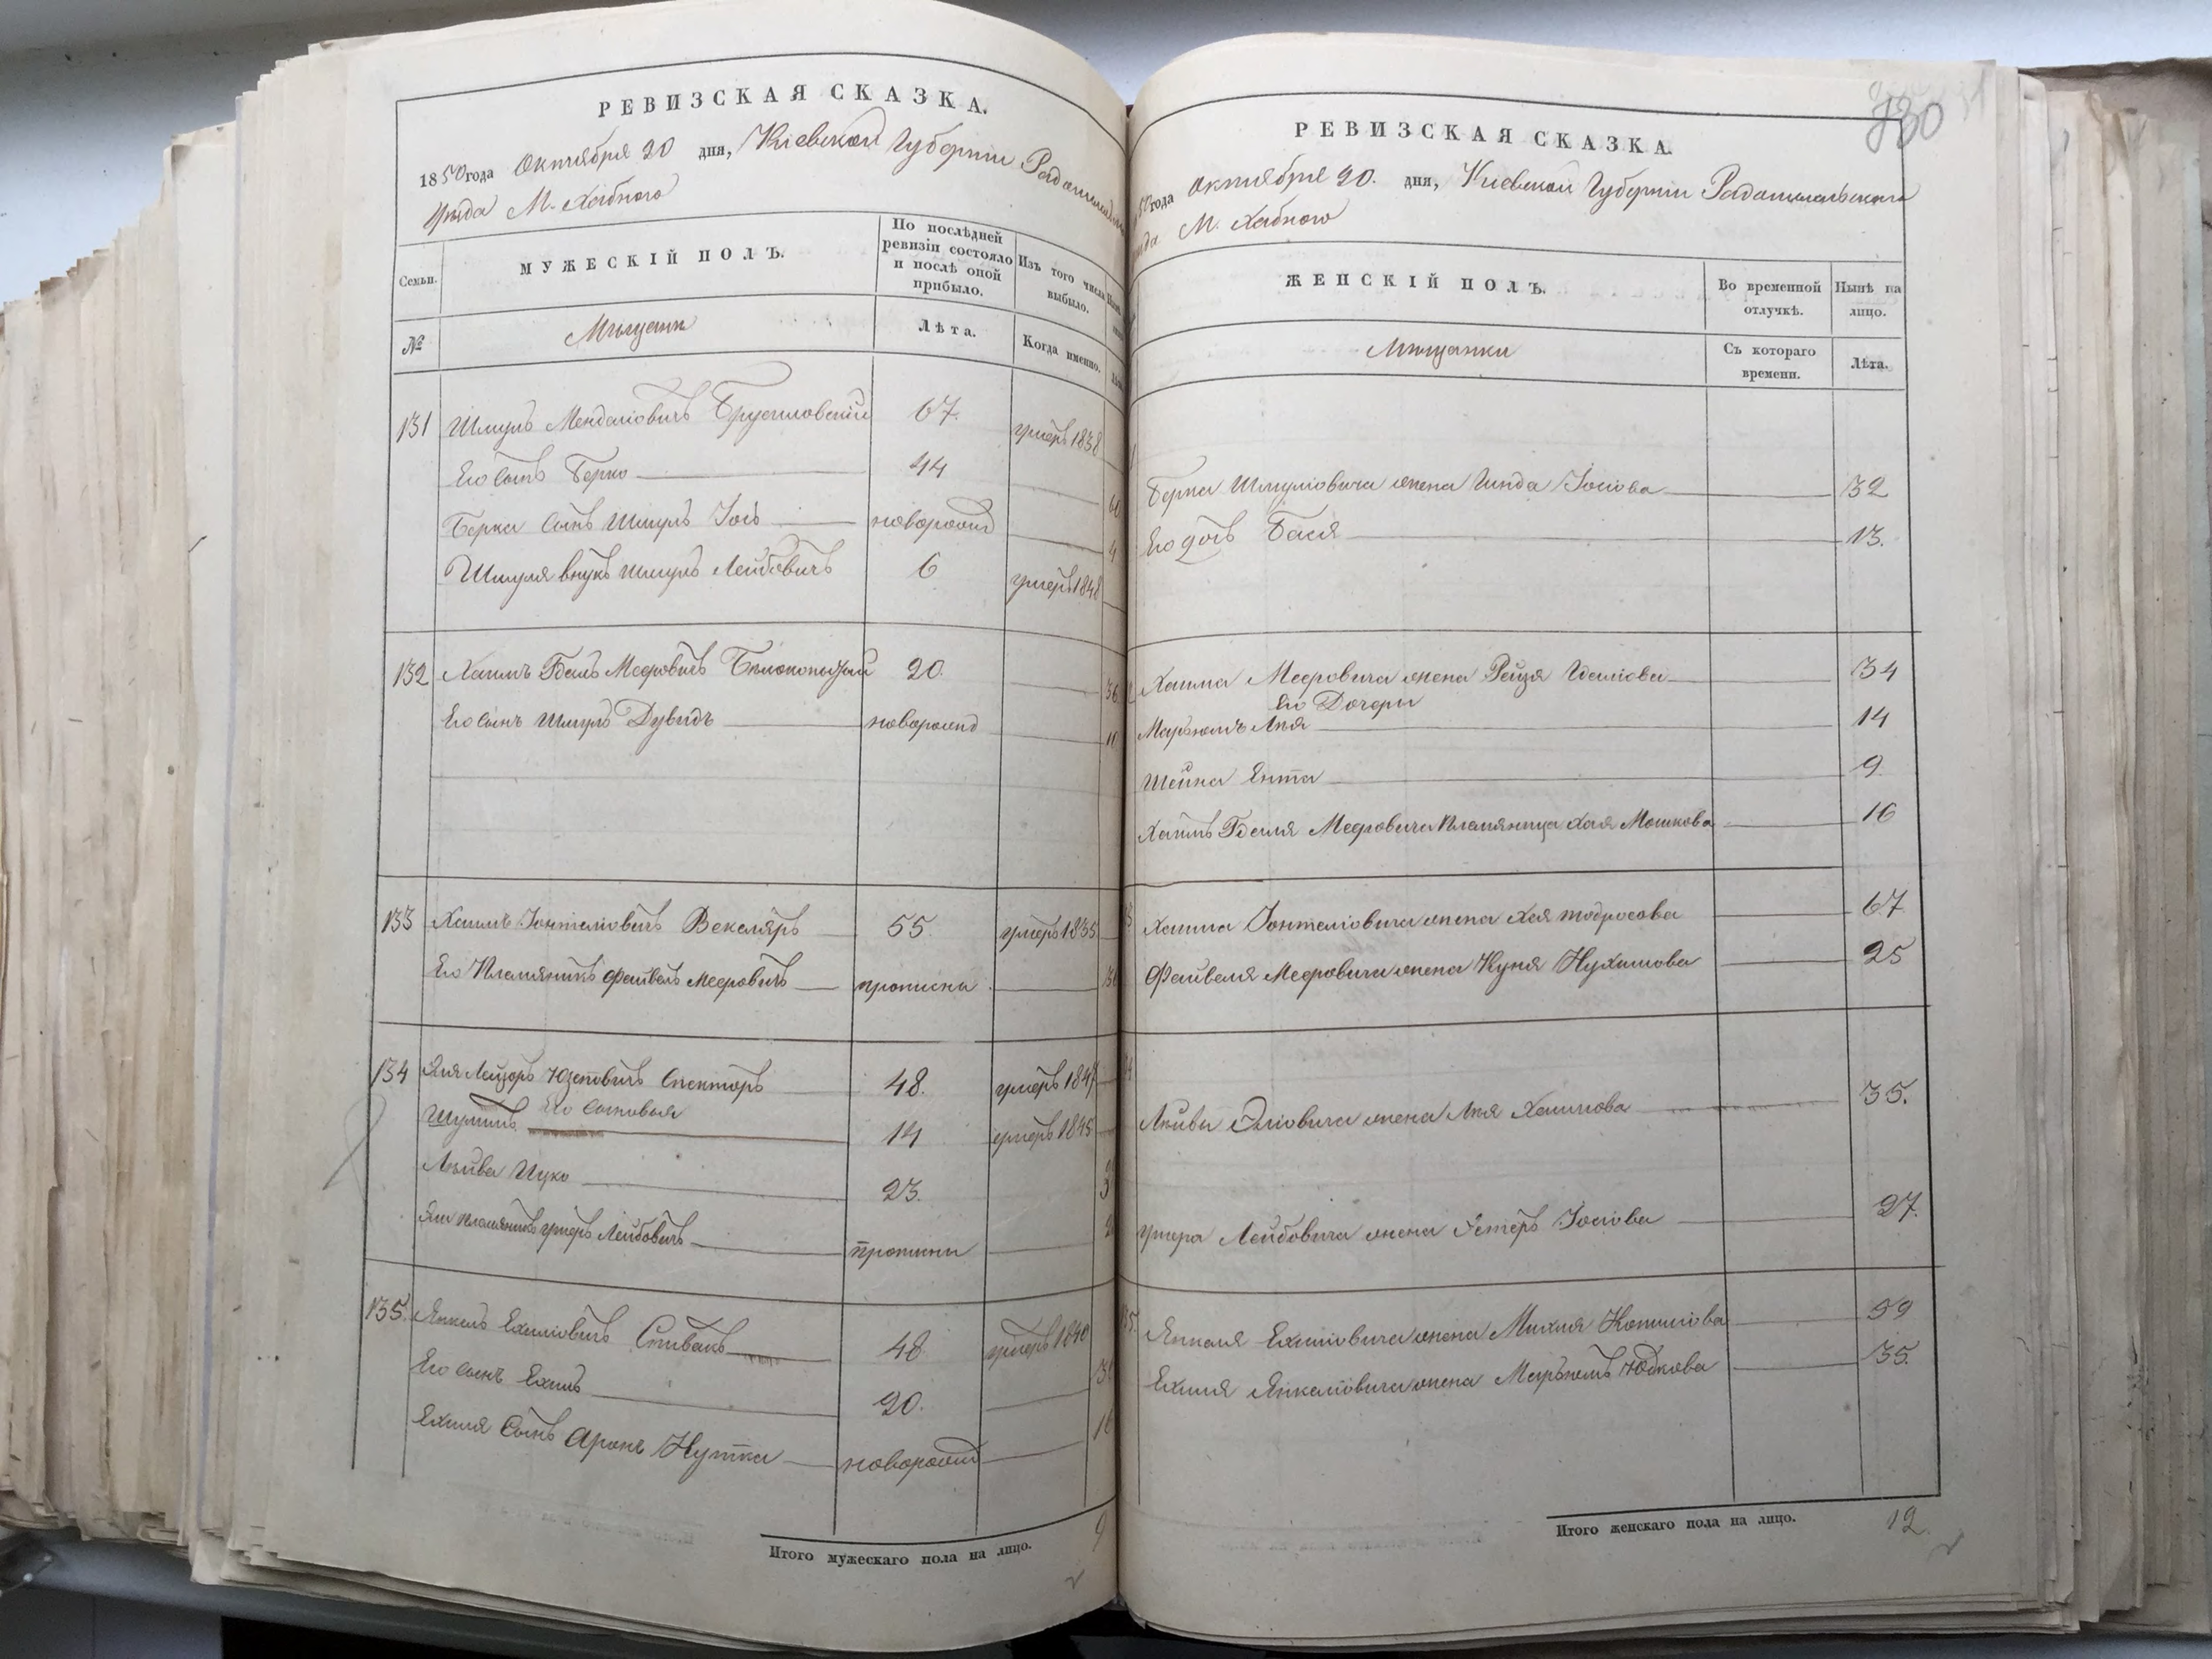 РЕВИЗСКАЯ СКАЗКА.
1850 года Октября 20 дня, Кіевской Губерніи
уѣзда М. Хабного
Семьи.
МУЖЕСКІЙ ПОЛЪ.
По послѣдней ревизіи состояло и послѣ оной прибыло.
Изъ того числа выбыло.
№
Мѣщане
Лѣта.
Когда именно.
131 Шмуль Менделіовичъ Брусиловскій 67. умеръ 1838
Его сынъ Берко 44
Берка сынъ Шмуль Іось новорожд
Шмуля внукъ Шмуль Лейбовичъ 6 умеръ 1848
132 Хаимъ Беель Меровичъ 20.
Его сынъ Шмуль Дувидъ новорожд
133 Хаимъ Іонтеліовичъ Векслеръ 55. умеръ 1835
Его Племяникъ Файвель Меровичъ прописны
134 Эля Лейзоръ Юзеповичъ Спекторъ 48. умеръ 1847
Его сыновья
Шулимъ 14 умеръ 1845
Лейва Ицко 23.
Эли племяникъ Лейбовичъ прописны
135. Янкель Ехиліовичъ Спивакъ 48. умеръ 1840
Его сынъ Ехиль 20.
Ехиля Сынъ Аронъ Нутка новорожд
Итого мужескаго пола на лицо. 9
730
РЕВИЗСКАЯ СКАЗКА.
года октября 20. дня, Кіевской Губерніи Радомысльскаго
М. Хабного
ЖЕНСКІЙ ПОЛЪ.
Во временной отлучкѣ.
Нынѣ на лицо.
Мѣщанки
Съ котораго времени.
Лѣта.
Берка Шмуліовича жена Гинда Іосіова 32
Его дочь Бася 13.
Хаима Меровича жена Рейзя 34
Его Дочери
Марьямъ Лея 14
Шейна Ента 9.
Хаимъ Беиля Меровича Племяница Хая Мошкова 16
Хаима Іонтеліовича жена Хая Тодросова 67
Файвеля Меровича жена Куня Нухимова 25
Лейви Эліовича жена Лея Хаимова 35.
Лейбовича жена Естеръ Іосіова 27.
135. Янкеля Ехиліовича жена Михля 59
Ехиля Янкеліовича жена Марьямъ Юдкова 35.
Итого женскаго пола на лицо. 12.